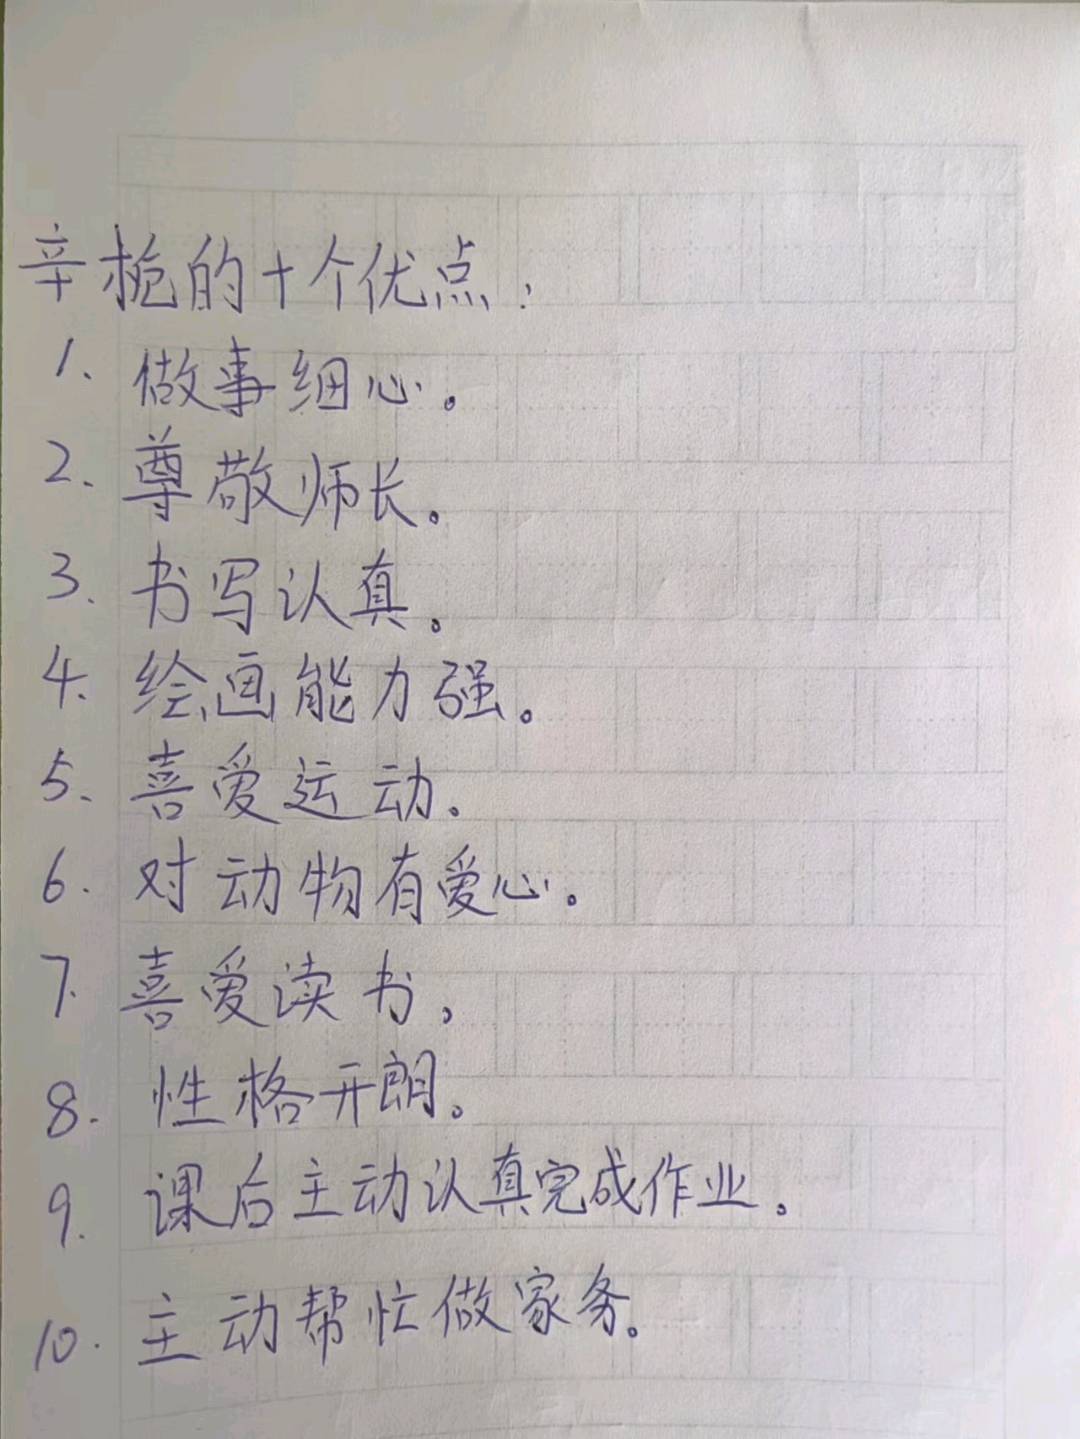 辛桅的十个优点:
1、做事细心。
2、尊敬师长。
3、书写认真。
4、绘画能力强。
5、喜爱运动。
6. 对动物有爱心。
7. 喜爱读书。
8. 性格开朗。
9. 课后主动认真完成作业。
10. 主动帮忙做家务。